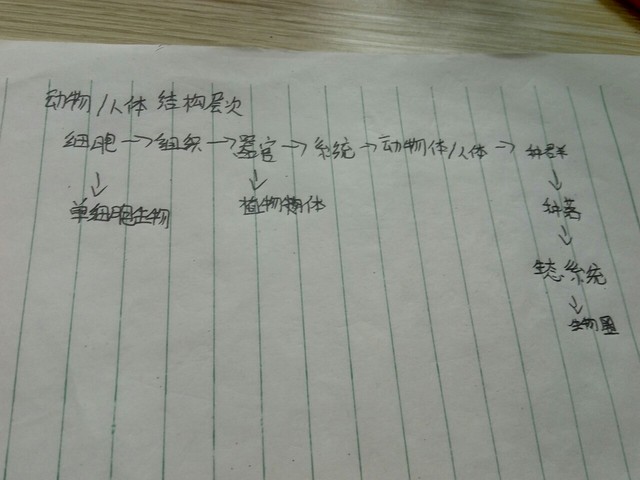 动物/人体 结构层次
细胞→组织→器官→系统→动物体/人体→种群
↓ ↓ ↓
单细胞生物 植物体 种落
↓
生态系统
↓
生物圈